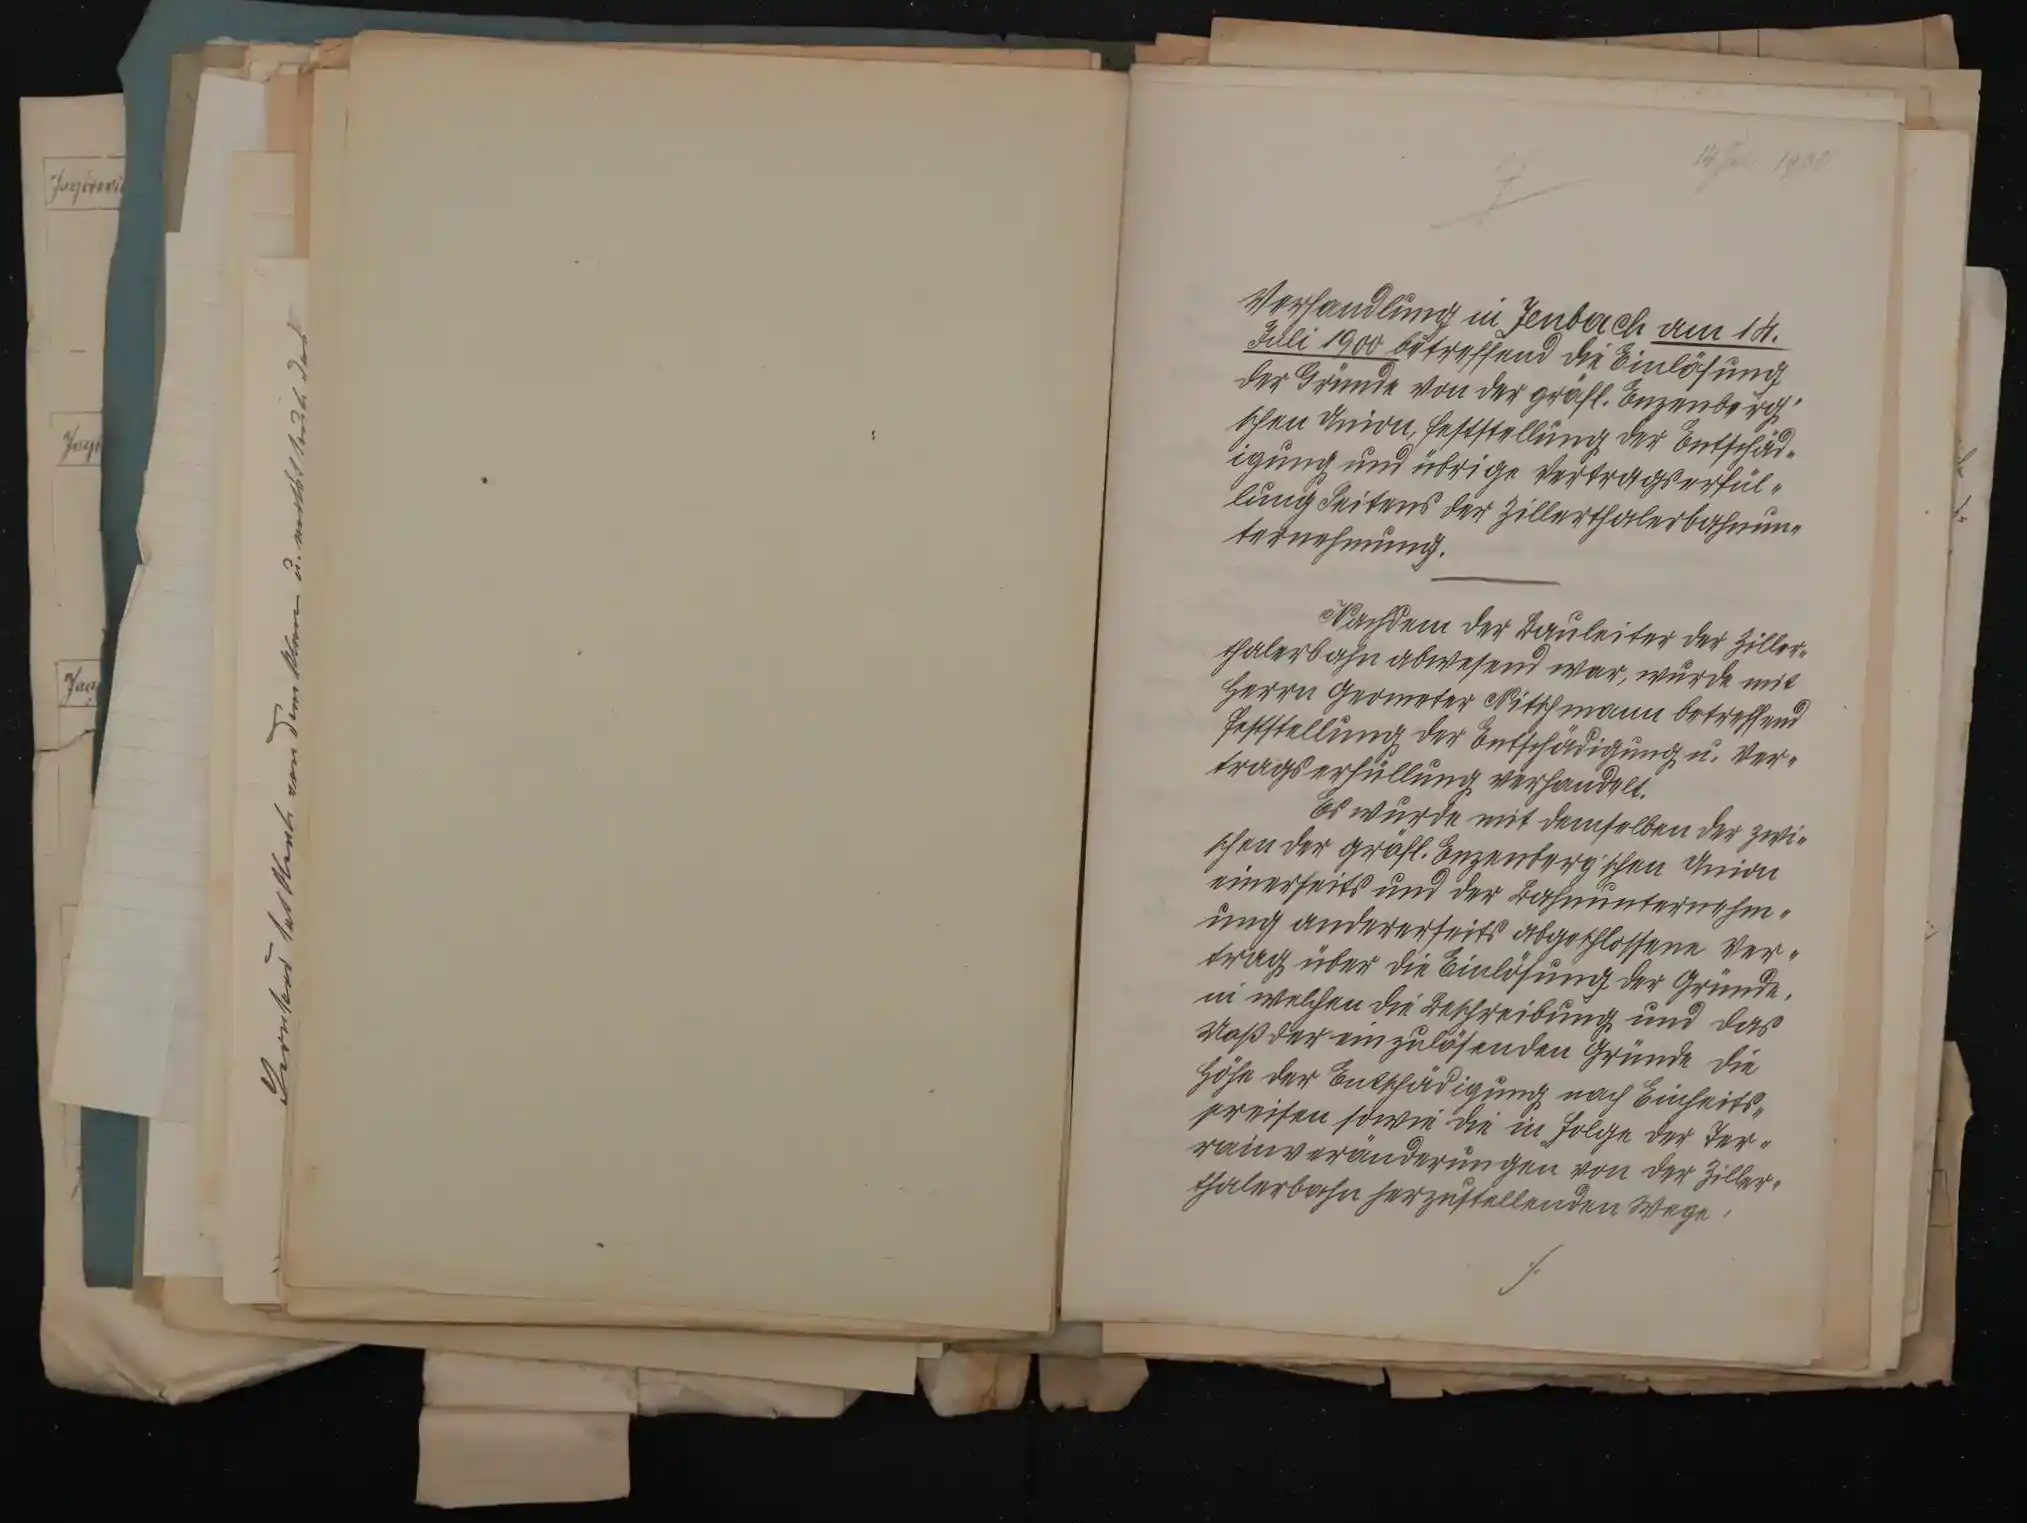 14 Juli 1900
Verhandlung in Jenbach am 14.
Juli 1900 betreffend die Einlösung
der Gründe von der gräfl. Enzenberg'
schen Union, Feststellung der Entschäd-
igung und übrige Vertragserfül-
lung Seitens der Zillerthalerbahnun-
ternehmung.
Nachdem der Bauleiter der Ziller-
thalerbahn abwesend war, wurde mit
Herrn Geometer Nitschmann betreffend
Feststellung der Entschädigung u. Ver-
tragserfüllung verhandelt.
Es wurde mit demselben der zwi-
schen der gräfl. Enzenberg'schen Union
einerseits und der Bahnunternehm-
ung andererseits abgeschlossene Ver-
trag über die Einlösung der Gründe,
in welchen die Beschreibung und das
Maß der einzulösenden Gründe die
Höhe der Entschädigung nach Einheits-
preisen sowie die in Folge der Ter-
rainveränderungen von der Ziller-
thalerbahn herzustellenden Wege,
./.